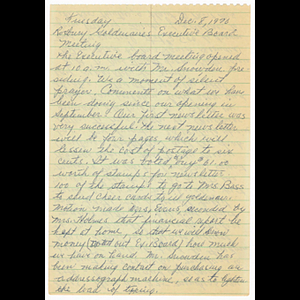 Tuesday Dec. 8, 1970
Roxbury Goldenaires Executive Board
Meeting
The Executive board meeting opened
at 10 a.m. with Mr. Snowden pre-
siding. We a moment of silent
prayer. Comments on what we have
been doing since our opening in
September. Our first newsletter was
very successful. The next newsletter
will be four pages, which will
lessen the cost of postage to six
cents. It was voted buy $21.00
worth of stamps for newsletter
100 of the stamps to go to Mrs. Bass
to send cheer cards to ill goldenair.
Motion made Myrs. seconded by
Mrs. Holmes that financial report be
kept at home. So that we will know
money (without Ex. Board) how much
we have on hand. Mr. Snowden has
been making contact on purchasing an
addressograph machine, so as to lighten
the load of typing.